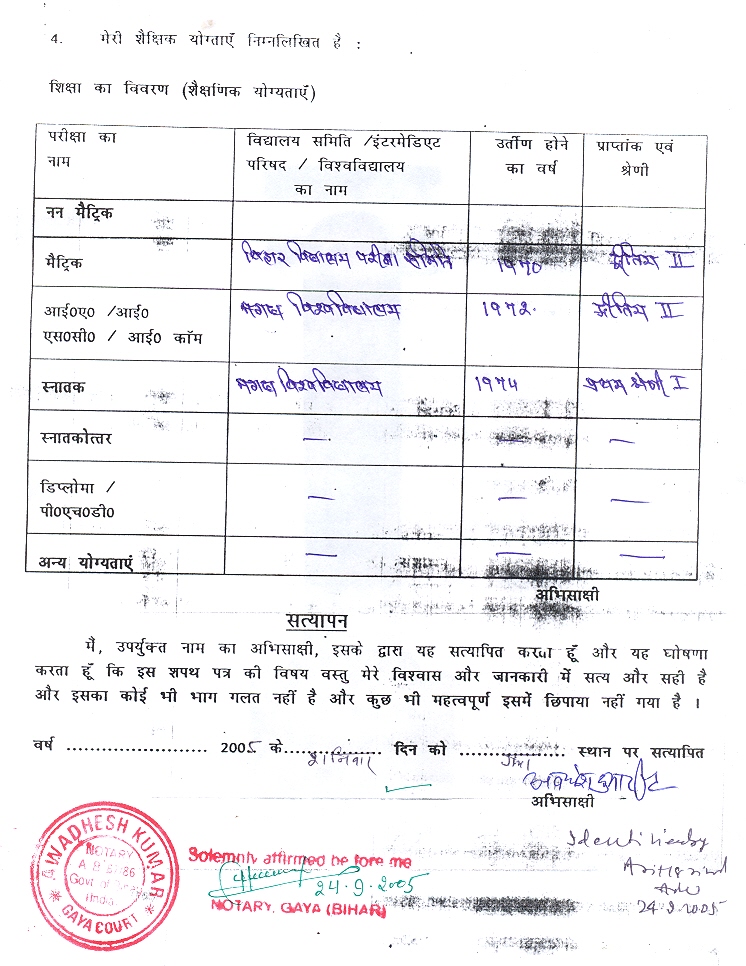 4. मेरी शैक्षिक योग्ताएँ निम्नलिखित है :
शिक्षा का विवरण (शैक्षणिक योग्यताएँ)
परीक्षा का नाम विद्यालय समिति /इंटरमेडिएट परिषद / विश्वविद्यालय का नाम उर्तीण होने का वर्ष प्राप्तांक एवं श्रेणी
नन मैट्रिक
मैट्रिक बिहार विद्यालय परीक्षा समिति १९७० द्वितिय II
आई०ए० /आई० एस०सी० / आई० कॉम मगध विश्वविद्यालय १९७२ द्वितिय II
स्नातक मगध विश्वविद्यालय १९७४ प्रथम श्रेणी I
स्नातकोत्तर — — —
डिप्लोमा / पी०एच०डी० — — —
अन्य योग्यताएं — — —
अभिसाक्षी
सत्यापन
मै, उपर्युक्त नाम का अभिसाक्षी, इसके द्वारा यह सत्यापित करता हूँ और यह घोषणा
करता हूँ कि इस शपथ पत्र की विषय वस्तु मेरे विश्वास और जानकारी में सत्य और सही है
और इसका कोई भी भाग गलत नहीं है और कुछ भी महत्वपूर्ण इसमें छिपाया नहीं गया है ।
वर्ष ...................... 2005 के............... दिन को ................. स्थान पर सत्यापित
शनिवार गया
अभिसाक्षी
AWADHESH KUMAR
NOTARY
India
GAYA COURT
Solemnly affirmed before me
24.9.2005
NOTARY, GAYA (BIHAR)
Identified by
24.9.2005